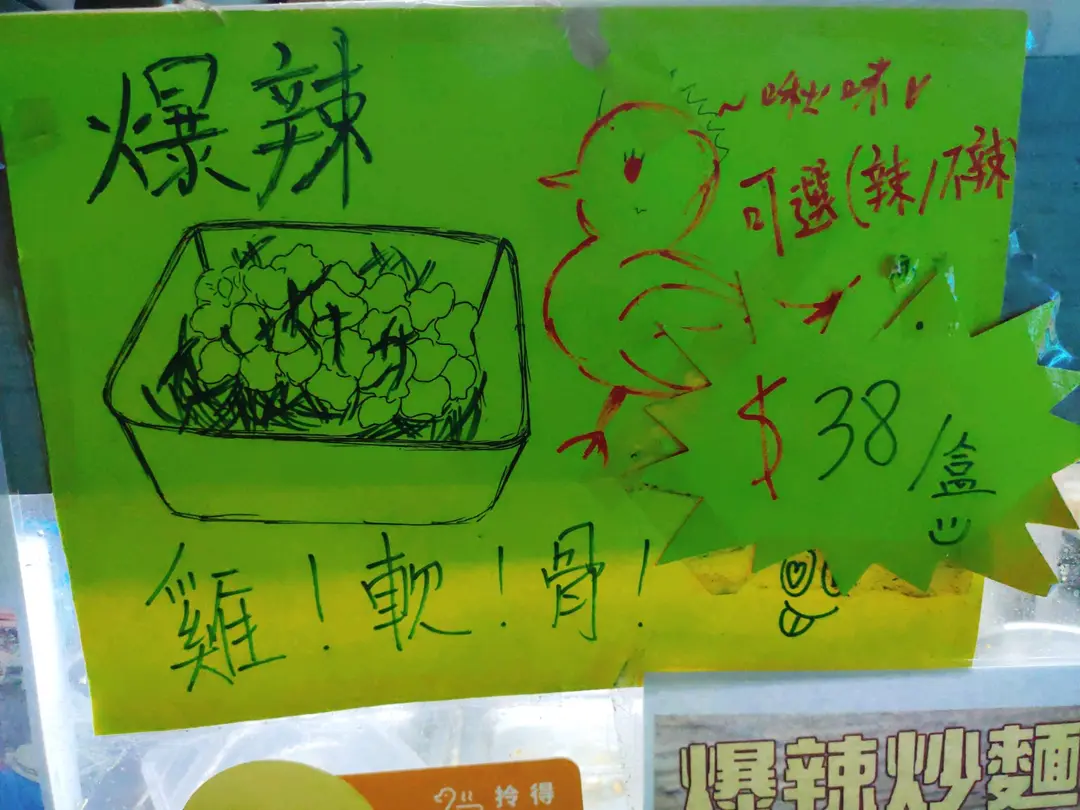 爆辣
~啾味
可選(辣/不辣)
$38/盒
雞！軟！骨！
爆辣炒麵
拎得